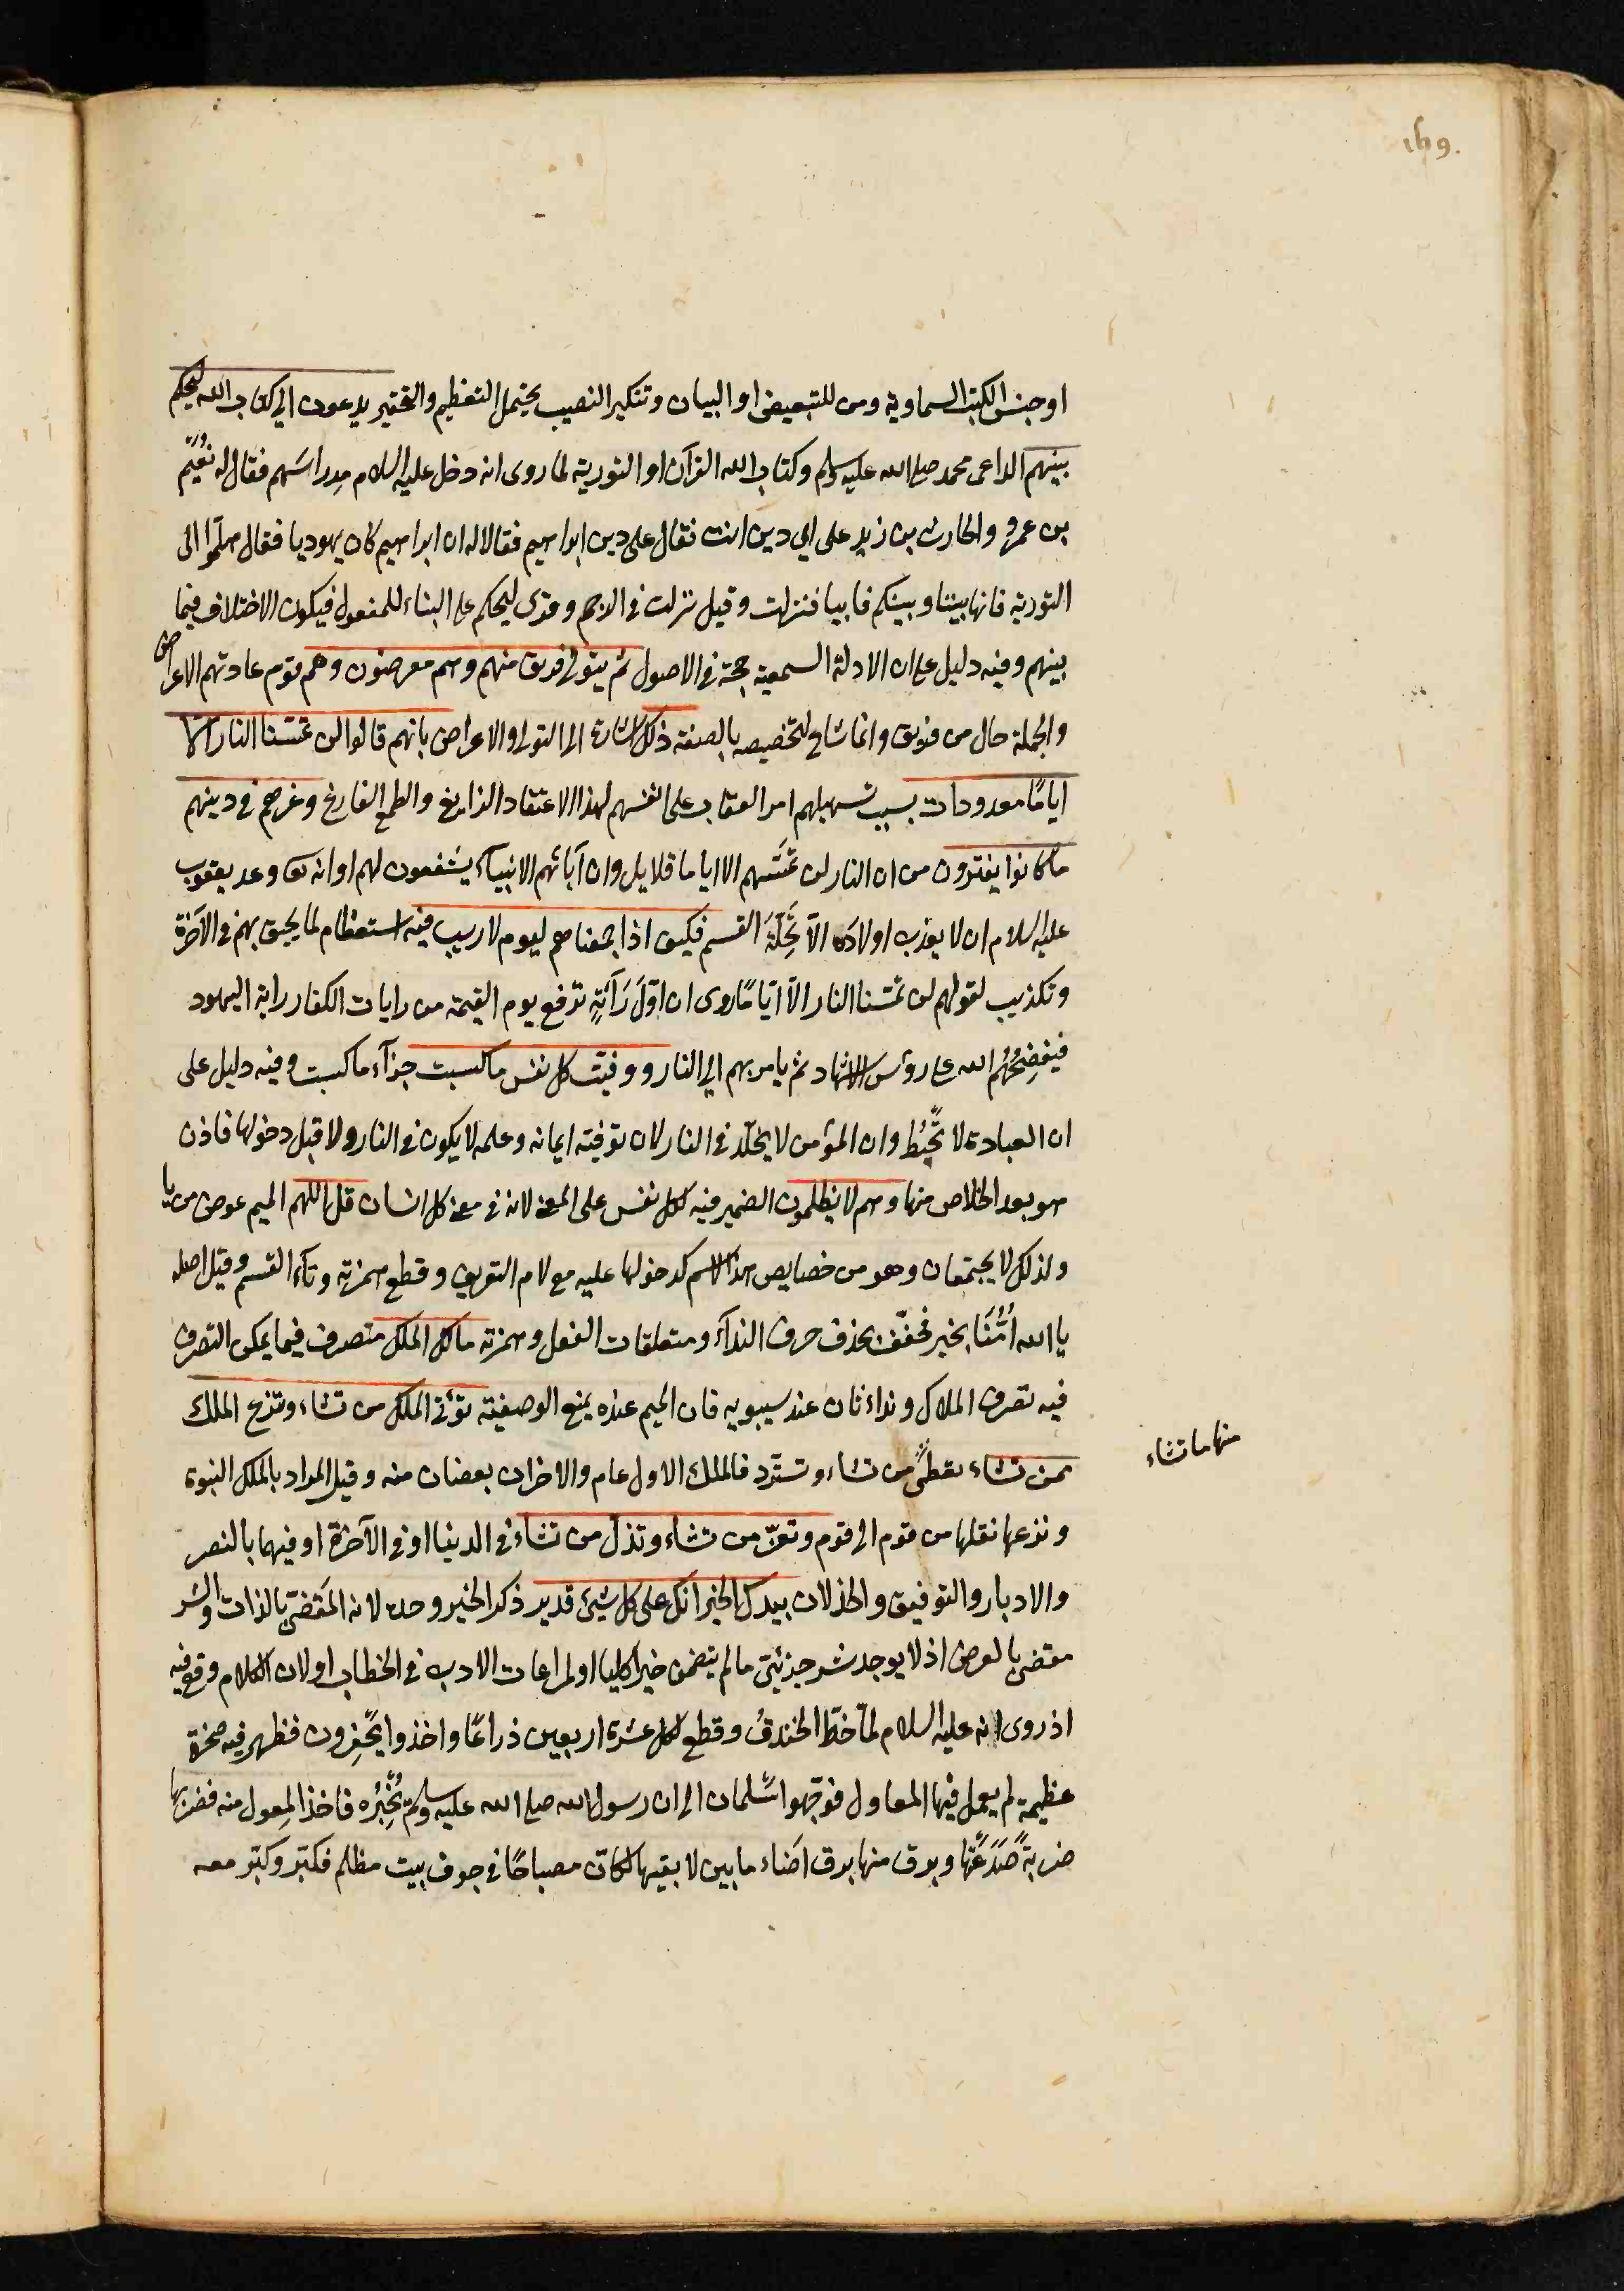 169.
او جنس الكتب السماوية ومن للتبعيض او البيان وتنكير النصيب يحتمل التعظيم والتحقير يدعون الى كتاب الله ليحكم
بينهم الداعى محمد صلى الله عليه وسلم وكتاب الله القرآن او التورية لما روى انه دخل عليه السلام مدراسهم فقال له نعيم
بن عمرو والحارث بن زيد على اى دين انت فقال على دين ابراهيم فقالا له ان ابراهيم كان يهوديا فقال هلموا الى
التورية فانها بيننا وبينكم فابيا فنزلت وقيل نزلت فى الرجم وقرى ليحكم على البناء للمفعول فيكون الاختلاف فيما
بينهم وفيه دليل على ان الادلة السمعية حجة فى الاصول ثم يتولى فريق منهم وهم معرضون وهم قوم عادتهم الاعراض
والجملة حال من فريق وانما شاع لتخصيصه بالصفة ذلك اشارة الى التولى والاعراض بانهم قالوا لن تمسنا النار الا
اياما معدودات بسبب تسهيلهم امر العقاب على انفسهم لهذا الاعتقاد الزايغ والطمع الفارغ وغرهم فى دينهم
ما كانوا يفترون من ان النار لن تمسهم الا اياما قلايل وان آبائهم الانبياء يشفعون لهم او انه تع وعد يعقوب
عليه السلام ان لا يعذب اولاده الا تحلة القسم فكيف اذا جمعناهم ليوم لا ريب فيه استعظام لما يحيق بهم فى الآخرة
وتكذيب لقولهم لن تمسنا النار الا اياما روى ان اول راية ترفع يوم القيمة من رايات الكفار راية اليهود
فيفضحهم الله على رؤس الاشهاد ثم يامر بهم الى النار ووفيت كل نفس ما كسبت جزآء ما كسبت وفيه دليل على
ان العبادة لا تحبط وان المؤمن لا يخلد فى النار لان توفية ايمانه وعمله لا يكون فى النار ولا قبل دخولها فاذن
هو بعد الخلاص منها وهم لا يظلمون الضمير فيه لكل نفس على المعنى لانه فى معنى كل انسان قل اللهم الميم عوض من يا
ولذلك لا يجتمعان وهو من خصايص هذا الاسم كدخولها عليه مع لام التعريف وقطع همزته وتآء القسم وقيل اصله
يا الله امنا بخير فخفف بحذف حرف الندآء ومتعلقات الفعل وهمزته مالك الملك متصرف فيما يمكن التصرف
فيه تصرف الملاك ونداء ثان عند سيبويه فان الميم عنده يمنع الوصفية تؤتى الملك من تشاء وتنزع الملك
ممن تشاء تعطى من تشاء وتسترد فالملك الاول عام والاخران بعضان منه وقيل المراد بالملك النبوة
منها ما تشاء
ونزعها نقلها من قوم الى قوم وتعز من تشاء وتذل من تشاء فى الدنيا او فى الآخرة او فيهما بالنصر
والادبار والتوفيق والخذلان بيدك الخير انك على كل شئ قدير ذكر الخير وحده لانه المقضى بالذات والشر
مقضى بالعرض اذ لا يوجد شر جزئى ما لم يتضمن خيرا كليا او لمراعات الادب فى الخطاب او لان الكلام وقع فيه
اذ روى انه عليه السلام لما خط الخندق وقطع لكل عشرة اربعين ذراعا واخذوا يحفرون فظهر فيه صخرة
عظيمة لم يعمل فيها المعاول فوجهوا سلمان الى ان رسول الله صلى الله عليه وسلم يخبره فاخذ المعول منه فضربها
ضربة صدعتها وبرق منها برق اضاء ما بين لابتيها لكان مصباحا فى جوف بيت مظلم فكبر وكبر معه